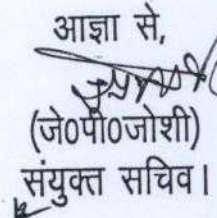 आज्ञा से,
(जे०पी०जोशी)
संयुक्त सचिव।